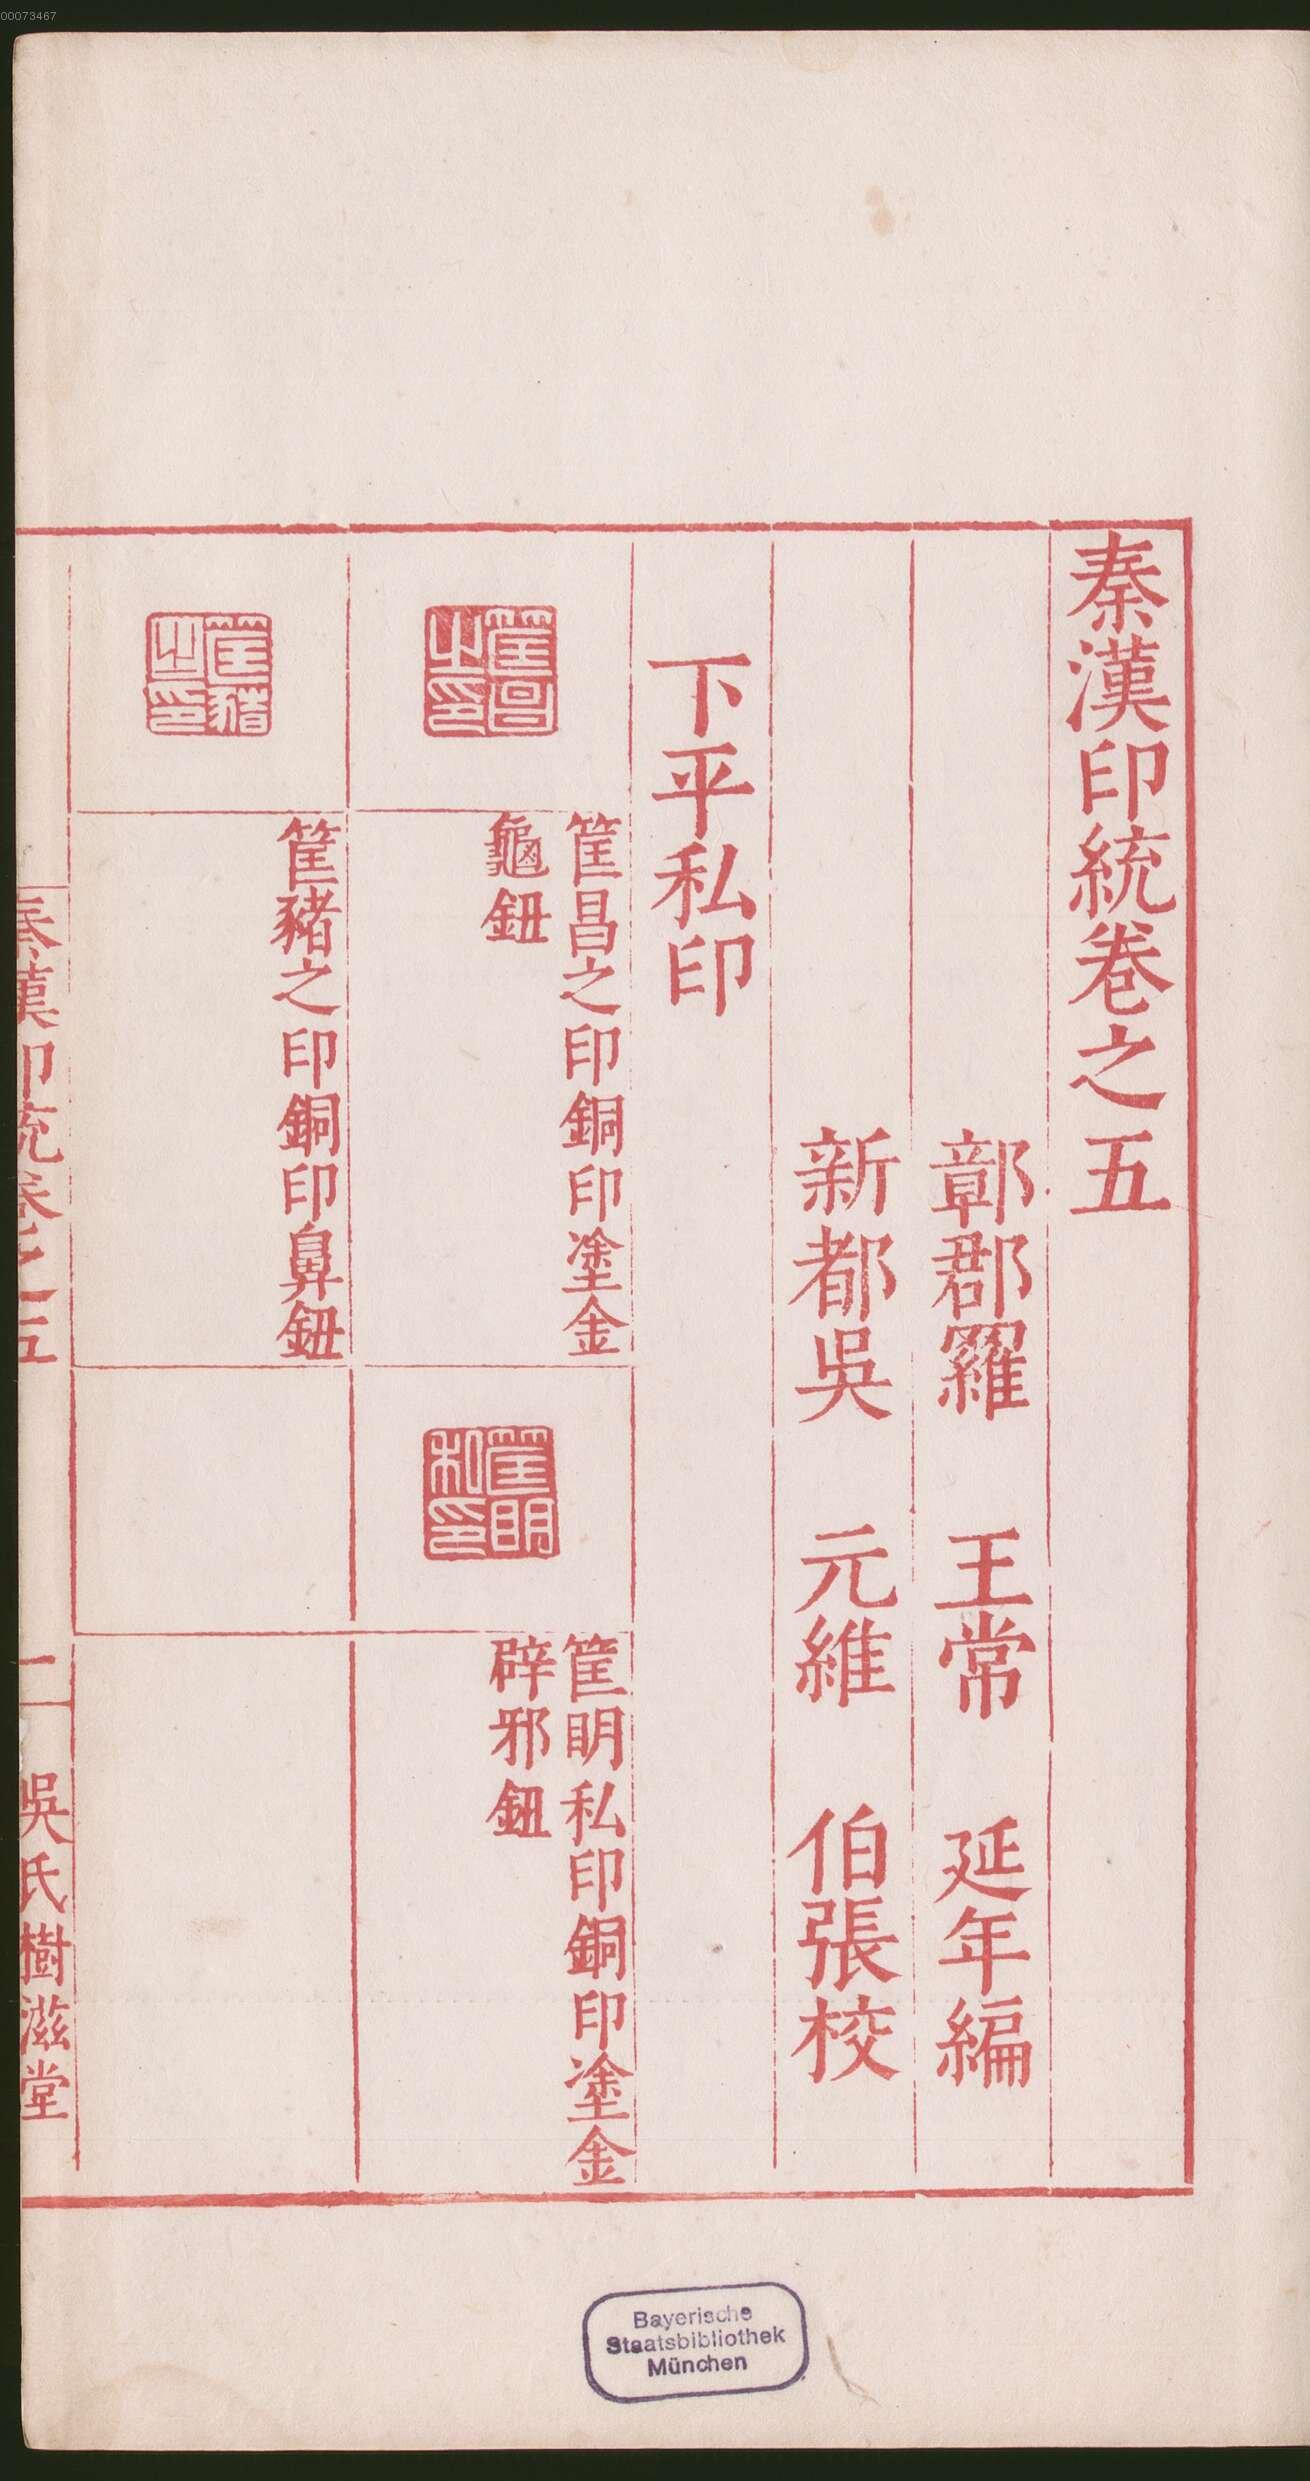 00073467
秦漢印統卷之五
鄣郡羅 王常 延年編
新都吳 元維 伯張校
下平私印
筐昌之印
筐昌之印銅印塗金
龜鈕
筐明私印
筐眀私印銅印塗金
辟邪鈕
筐豬之印
筐豬之印銅印鼻鈕
秦漢印統卷之五 二 吳氏樹滋堂
Bayerische
Staatsbibliothek
München